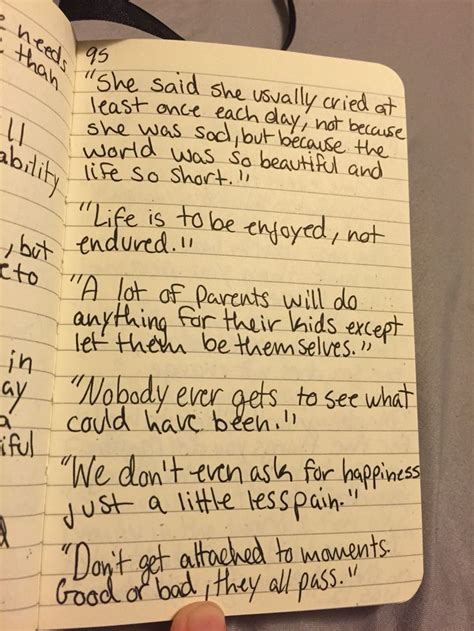 e needs
t than
ll
ability
, but
c to
in
ay
a
iful
95
"She said she usually cried at
least once each day, not because
she was sad, but because the
world was so beautiful and
life so short."
"Life is to be enjoyed, not
endured."
"A lot of parents will do
anything for their kids except
let them be themselves."
"Nobody ever gets to see what
could have been."
"We don't even ask for happiness
just a little less pain."
"Don't get attached to moments.
Good or bad, they all pass."